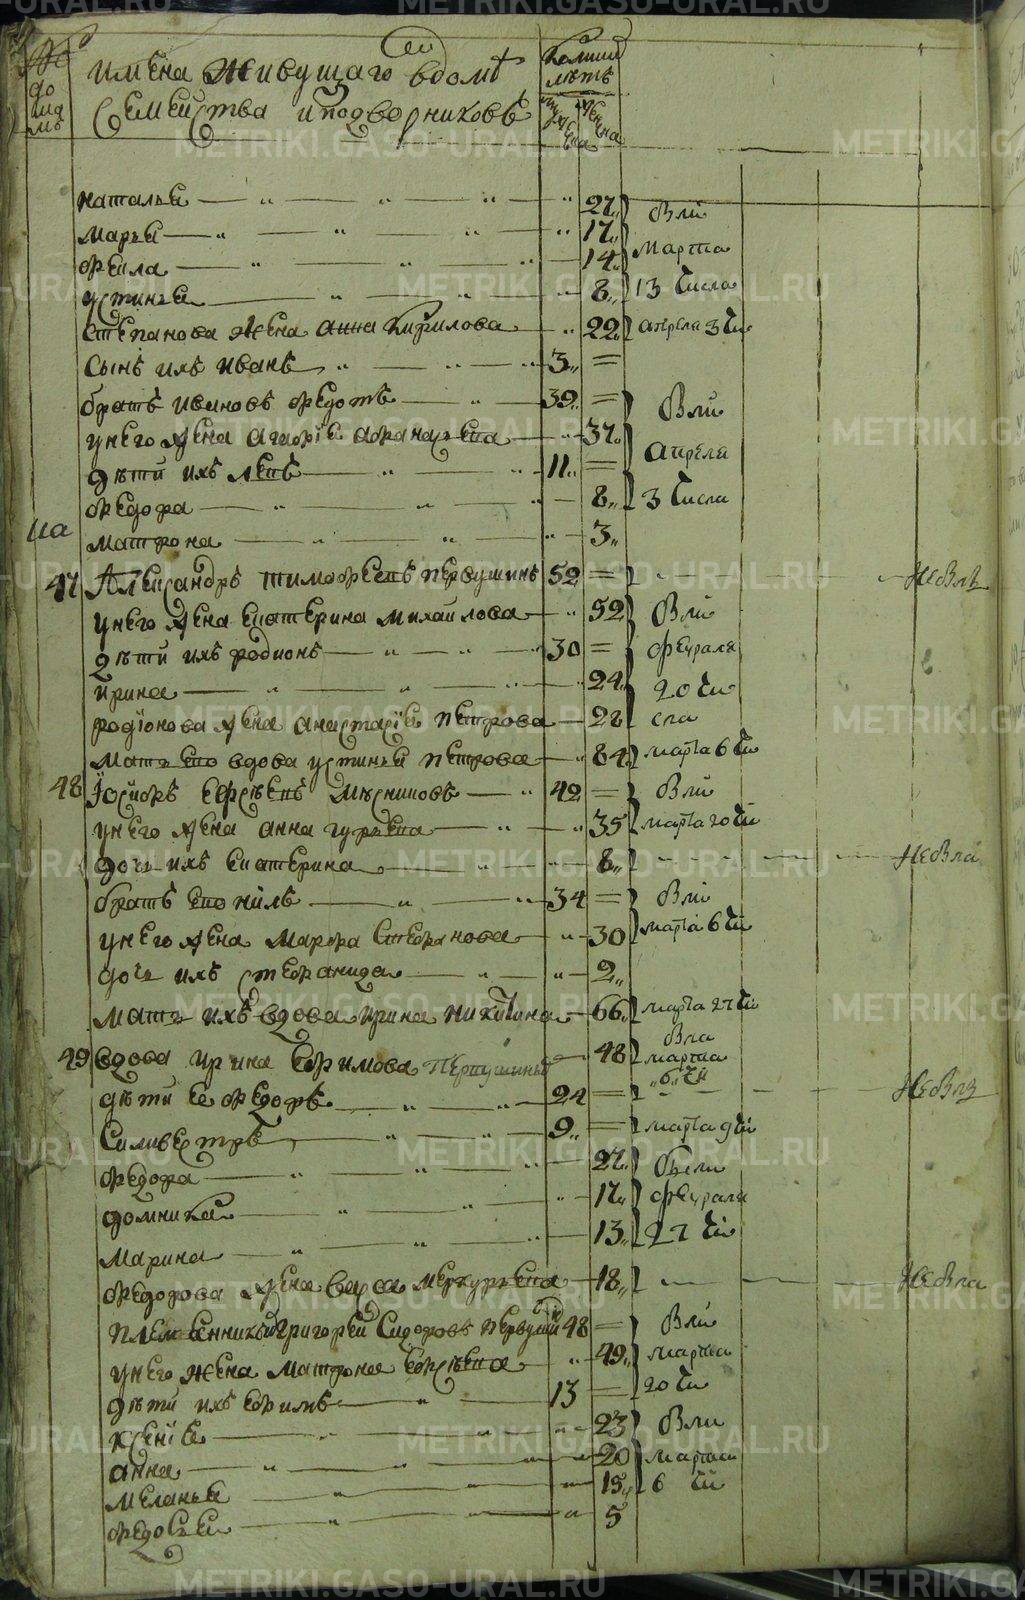 № домамъ имена живущаго вдомѣ семейства иподворниковъ
Колики лѣтъ
мужеска женска
наталья 27 Вли
марья 17 марта
фекла 14 13 числа
устинья 8
степанова жена анна кирилова 22 апреля 3 чи
сынъ ихъ иванъ 3
братъ ивановъ федотъ 39 Вли
унего жена агафїя афанасьева 37 апреля
дѣти ихъ левъ 11
федора 8 3 числа
матрона 3
47 Александръ тимофеевъ первушинъ 52 невлъ
унего жена екатерина михаилова 52 Вли
дѣти ихъ родионъ 30 февраля
ирина 24 20 чи
родїонова жена анастасїя петрова 28 сла
мать его вдова устинья петрова 84 марта 6 чи
48 Їосифъ евсѣевъ мясниковъ 42 Вли
унего жена анна гурьева 35 марта 20 чи
дочь ихъ екатерина 8 невла
братъ его нилъ 34 Вли
унего жена марфа стефанова 30 марта 6 чи
дочь ихъ стефанида 2
мать ихъ вдова ирина никитина 66 марта 27 чи
49 вдова ирина ефимова первушиныхъ 48 Вла марта 6 чи
дѣти ее федоръ 24 невлъ
силивестръ 9 марта 9 чи
федора 27 были
домника 17 февраля
марина 13 27 чи
федорова жена васса меркурьева 18 невла
племянникъ григорей сидоровъ первушинъ 48 Вли
унего жена матрона евсѣева 49 марта
дѣти ихъ ефимъ 13 20 чи
ксенїя 23 Вли
анна 20 марта
меланья 15 6 чи
федосья 5
METRIKI.GASO-URAL.RU